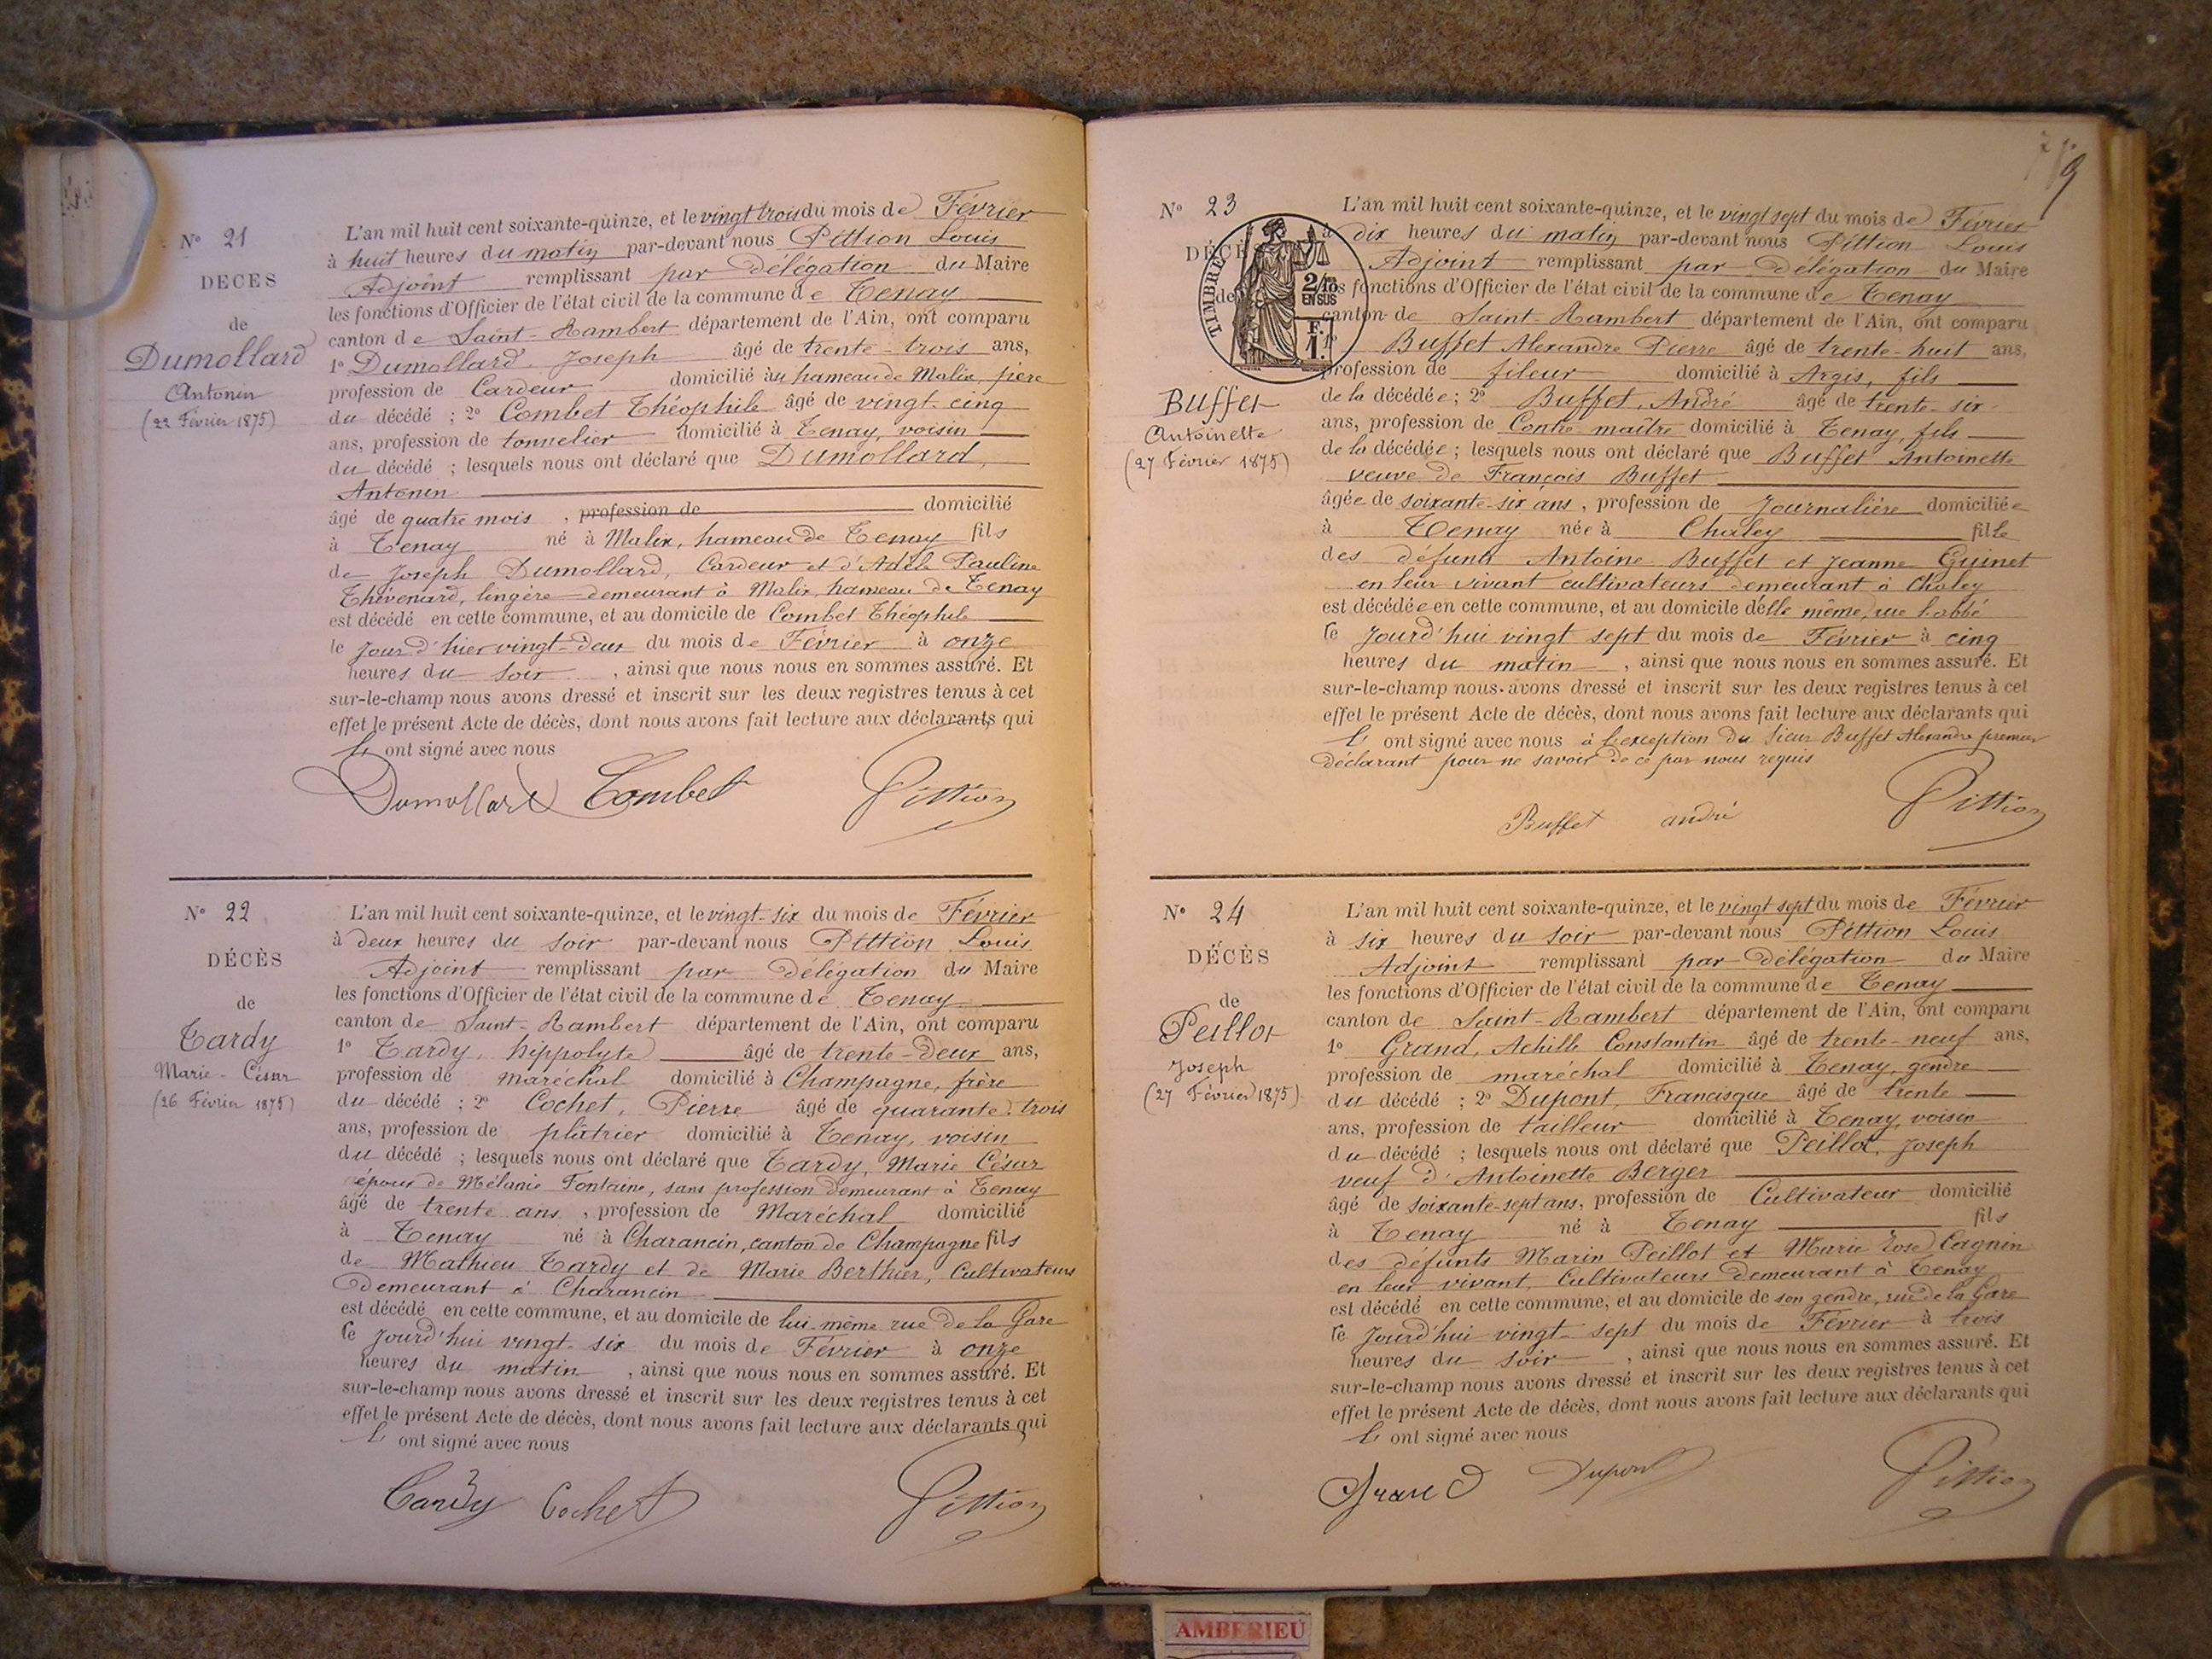 N° 21
DÉCÈS
de
Dumollard
Antonin
(22 Février 1875)
L'an mil huit cent soixante-quinze, et le vingt trois du mois de Février
à huit heures du matin par-devant nous Pittion Louis
Adjoint remplissant par délégation du Maire
les fonctions d'Officier de l'état civil de la commune de Tenay
canton de Saint-Rambert département de l'Ain, ont comparu
1° Dumollard Joseph âgé de trente-trois ans,
profession de Cardeur domicilié au hameau de Malix, père
du décédé ; 2° Combet Théophile âgé de vingt-cinq
ans, profession de tonnelier domicilié à Tenay, voisin
du décédé ; lesquels nous ont déclaré que Dumollard,
Antonin
âgé de quatre mois, profession de domicilié
à Tenay né à Malix, hameau de Tenay fils
de Joseph Dumollard, Cardeur et d'Adèle Pauline
Thévenard, lingère demeurant à Malix, hameau de Tenay
est décédé en cette commune, et au domicile de Combet Théophile
le jour d'hier vingt-deux du mois de Février à onze
heures du soir, ainsi que nous nous en sommes assuré. Et
sur-le-champ nous avons dressé et inscrit sur les deux registres tenus à cet
effet le présent Acte de décès, dont nous avons fait lecture aux déclarants qui
ont signé avec nous
Dumollard Combet Pittion
N° 22
DÉCÈS
de
Tardy
Marie-César
(26 Février 1875)
L'an mil huit cent soixante-quinze, et le vingt-six du mois de Février
à deux heures du soir par-devant nous Pittion Louis
Adjoint remplissant par délégation du Maire
les fonctions d'Officier de l'état civil de la commune de Tenay
canton de Saint-Rambert département de l'Ain, ont comparu
1° Tardy, hippolyte âgé de trente-deux ans,
profession de maréchal domicilié à Champagne, frère
du décédé ; 2° Cochet, Pierre âgé de quarante-trois
ans, profession de plâtrier domicilié à Tenay, voisin
du décédé ; lesquels nous ont déclaré que Tardy, Marie César
époux de Mélanie Fontaine, sans profession demeurant à Tenay
âgé de trente ans, profession de Maréchal domicilié
à Tenay né à Charancin, canton de Champagne fils
de Mathieu Tardy et de Marie Berthier, Cultivateurs
demeurant à Charancin
est décédé en cette commune, et au domicile de lui-même rue de la Gare
le jourd'hui vingt-six du mois de Février à onze
heures du matin, ainsi que nous nous en sommes assuré. Et
sur-le-champ nous avons dressé et inscrit sur les deux registres tenus à cet
effet le présent Acte de décès, dont nous avons fait lecture aux déclarants qui
ont signé avec nous
Tardy Cochet Pittion
9
N° 23
DÉCÈS
de
TIMBRE
2/10es
EN SUS
1 F.
Buffet
Antoinette
(27 Février 1875)
L'an mil huit cent soixante-quinze, et le vingt sept du mois de Février
à dix heures du matin par-devant nous Pittion Louis
Adjoint remplissant par délégation du Maire
les fonctions d'Officier de l'état civil de la commune de Tenay
canton de Saint-Rambert département de l'Ain, ont comparu
Buffet Alexandre Pierre âgé de trente-huit ans,
profession de fileur domicilié à Argis, fils
de la décédée ; 2° Buffet, André âgé de trente-six
ans, profession de Contre-maître domicilié à Tenay, fils
de la décédée ; lesquels nous ont déclaré que Buffet Antoinette
veuve de François Buffet
âgée de soixante-six ans, profession de Journalière domiciliée
à Tenay née à Chaley fille
des défunts Antoine Buffet et Jeanne Guinet
en leur vivant cultivateurs demeurant à Chaley
est décédée en cette commune, et au domicile d'elle même, rue l'abbé
le jourd'hui vingt sept du mois de Février à cinq
heures du matin, ainsi que nous nous en sommes assuré. Et
sur-le-champ nous avons dressé et inscrit sur les deux registres tenus à cet
effet le présent Acte de décès, dont nous avons fait lecture aux déclarants qui
ont signé avec nous à l'exception du Sieur Buffet Alexandre premier
déclarant pour ne savoir de ce par nous requis
Buffet andré Pittion
N° 24
DÉCÈS
de
Peillot
Joseph
(27 Février 1875)
L'an mil huit cent soixante-quinze, et le vingt sept du mois de Février
à six heures du soir par-devant nous Pittion Louis
Adjoint remplissant par délégation du Maire
les fonctions d'Officier de l'état civil de la commune de Tenay
canton de Saint-Rambert département de l'Ain, ont comparu
1° Grand, Achille Constantin âgé de trente-neuf ans,
profession de maréchal domicilié à Tenay, gendre
du décédé ; 2° Dupont, Francisque âgé de trente
ans, profession de tailleur domicilié à Tenay, voisin
du décédé ; lesquels nous ont déclaré que Peillot, Joseph
veuf d'Antoinette Berger
âgé de soixante-sept ans, profession de Cultivateur domicilié
à Tenay né à Tenay fils
des défunts Marin Peillot et Marie Rose Cagnin
en leur vivant, Cultivateurs demeurant à Tenay
est décédé en cette commune, et au domicile de son gendre, rue de la Gare
le jourd'hui vingt-sept du mois de Février à trois
heures du soir, ainsi que nous nous en sommes assuré. Et
sur-le-champ nous avons dressé et inscrit sur les deux registres tenus à cet
effet le présent Acte de décès, dont nous avons fait lecture aux déclarants qui
ont signé avec nous
Grand Dupont Pittion
AMBERIEU